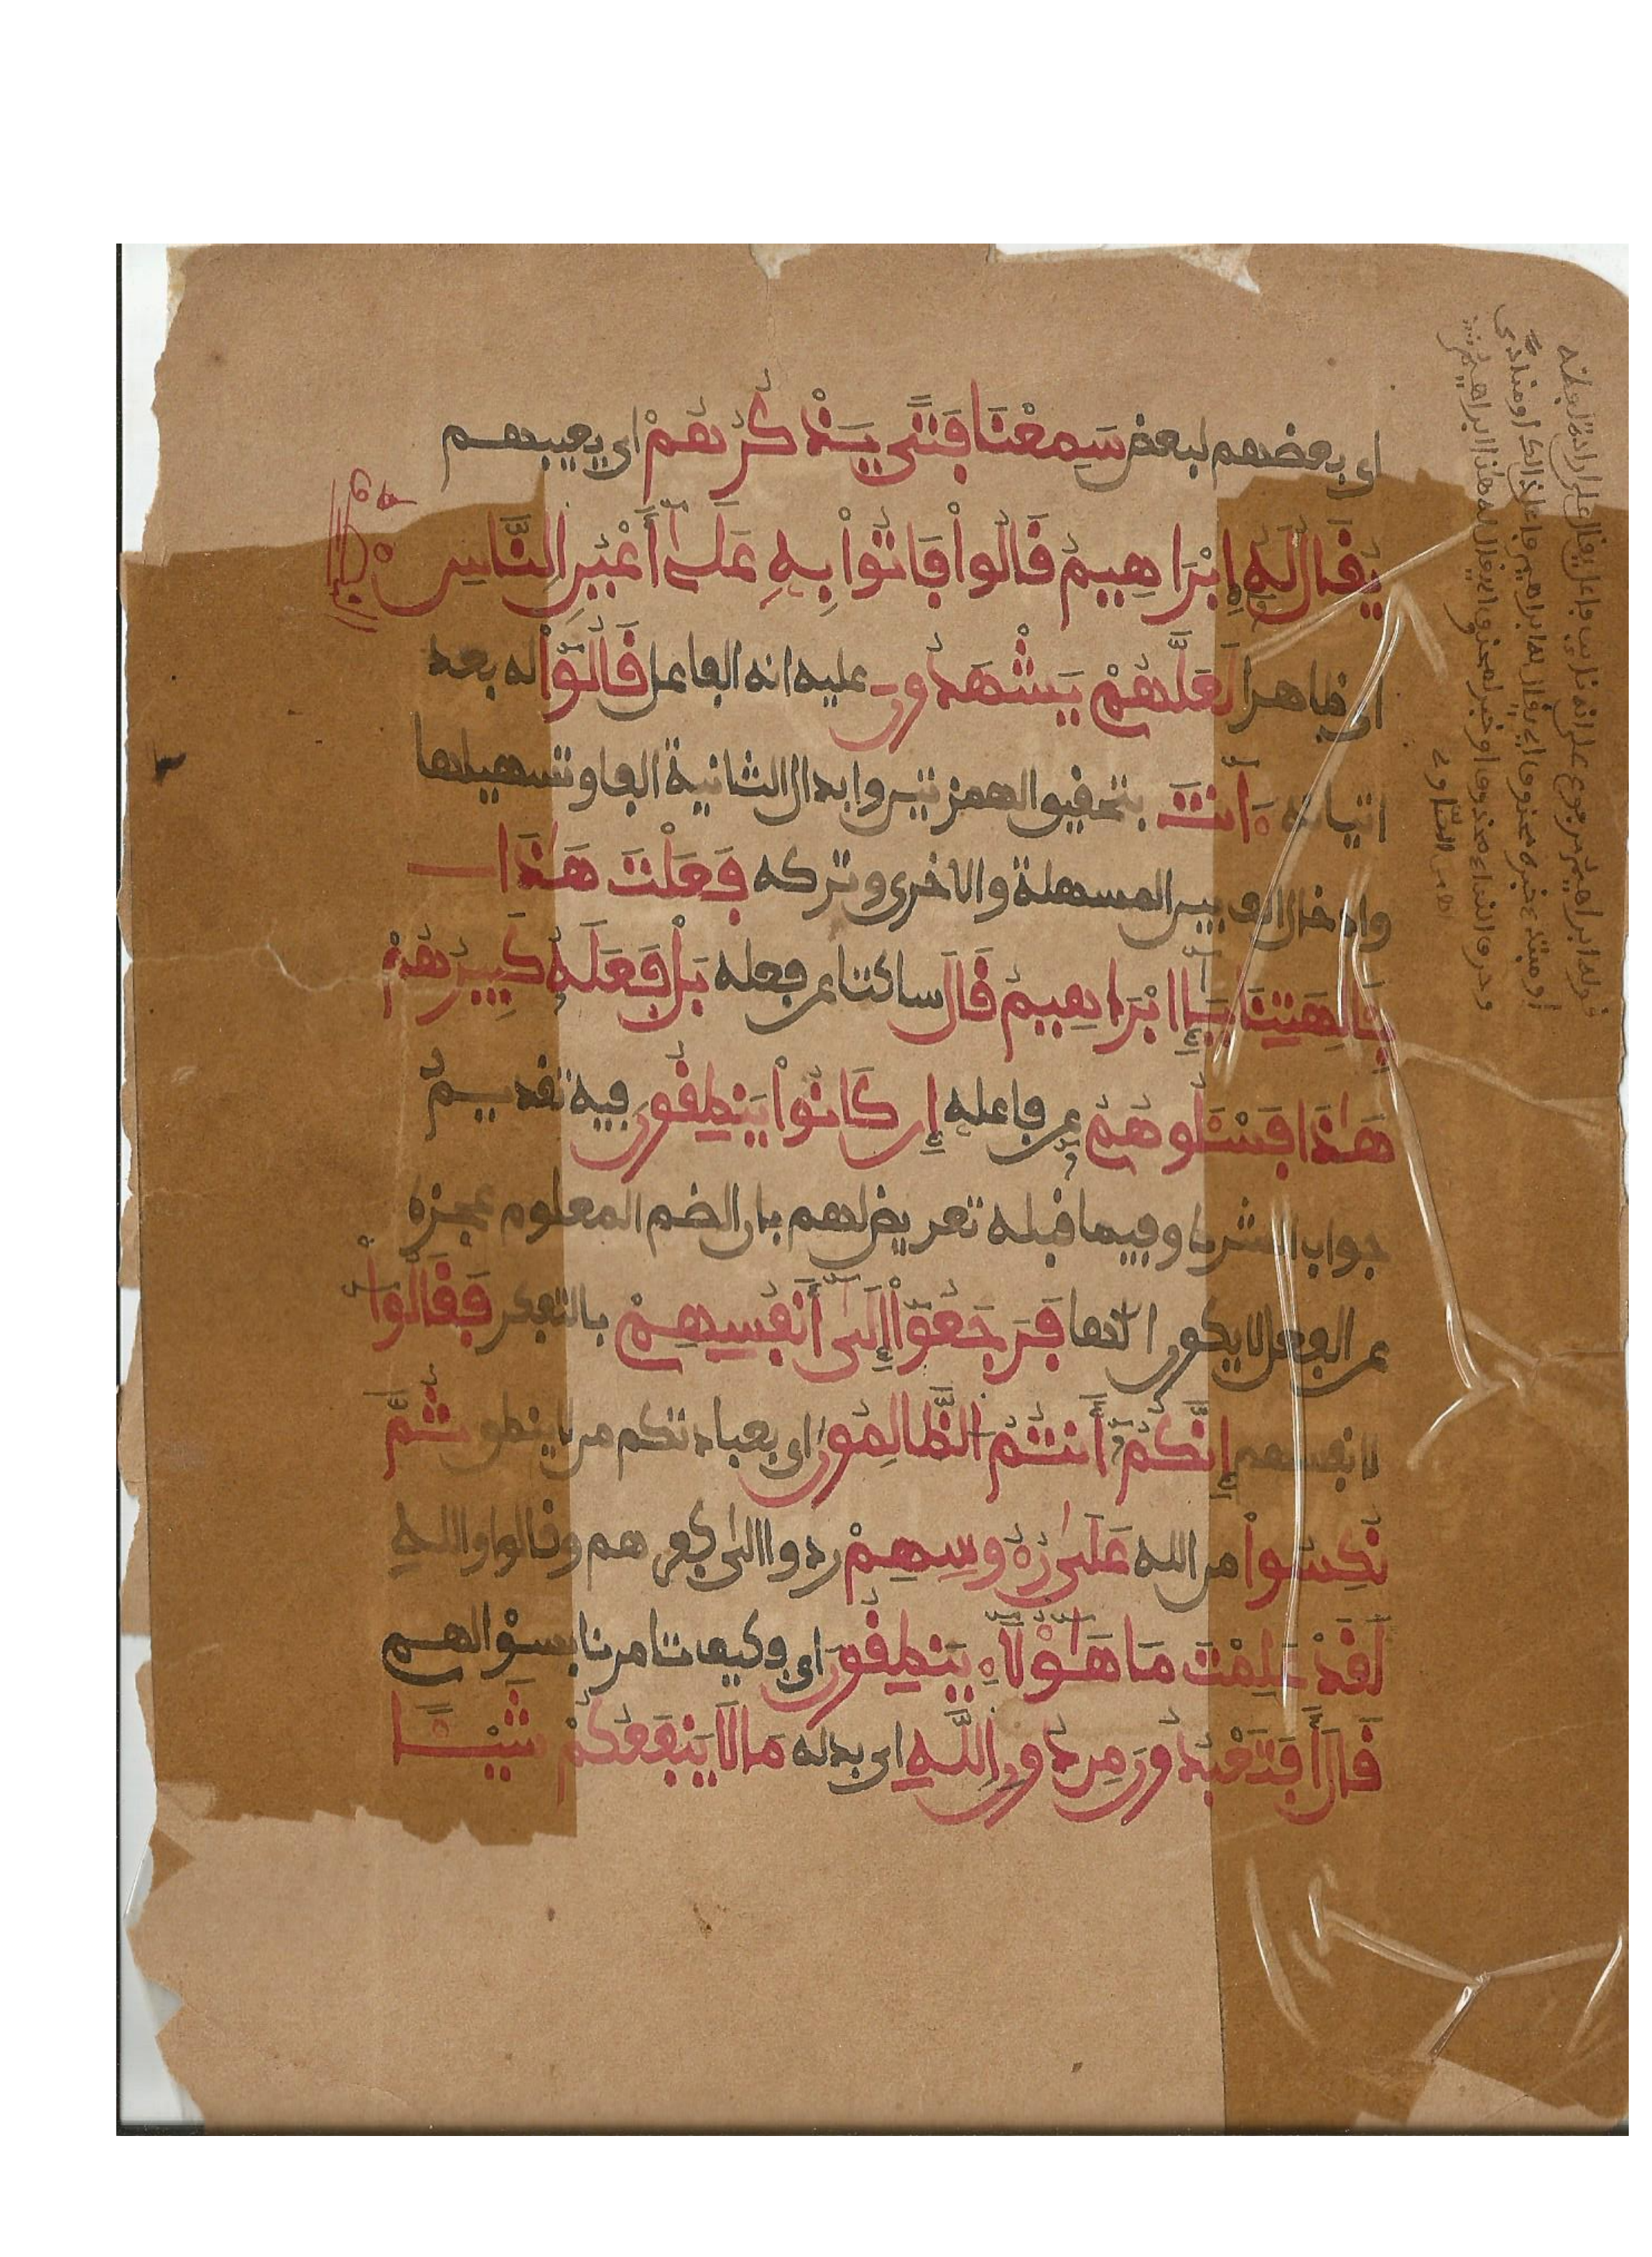 اى بعضهم لبعض سَمِعْنَا فَتًى يَذْكُرُهُمْ اى يعيبهم
يُقَالُ لَهُ إِبْرَاهِيمُ قَالُواْ فَاتُواْ بِهِ عَلَىٰ أَعْيُنِ النَّاسِ
اى ظاهرا لَعَلَّهُمْ يَشْهَدُونَ عليه انه الفاعل قَالُواْ له بعد
اتيانه ءَأَنتَ بتحقيق الهمزتين وابدال الثانية الفا وتسهيلها
وادخال الف بين المسهلة والاخرى وتركه فَعَلْتَ هَٰذَا
بِـَٔالِهَتِنَا يَٰإِبْرَاهِيمُ قَالَ ساكتا عن فعله بَلْ فَعَلَهُ كَبِيرُهُمْ
هَٰذَا فَسْـَٔلُوهُمْ عن فاعله إِن كَانُواْ يَنطِقُونَ فيه تقديم
جواب الشرط وفيما قبله تعريض لهم بان الصنم المعلوم عجزه
عن الفعل لا يكون الٰها فَرَجَعُوٓاْ إِلَىٰٓ أَنفُسِهِمْ بالتفكر فَقَالُوٓاْ
لانفسهم إِنَّكُمُۥٓ أَنتُمُ الظَّالِمُونَ اى بعبادتكم من لا ينطق ثُمَّ
نُكِسُواْ من الله عَلَىٰ رُءُوسِهِمْ ردوا الى كفرهم وقالوا والله
لَقَدْ عَلِمْتَ مَا هَٰٓؤُلَآءِ يَنطِقُونَ اى فكيف تامرنا بسؤالهم
قَالَ أَفَتَعْبُدُونَ مِن دُونِ اللَّهِ اى بدله مَا لَا يَنفَعُكُمْ شَيْـًٔا